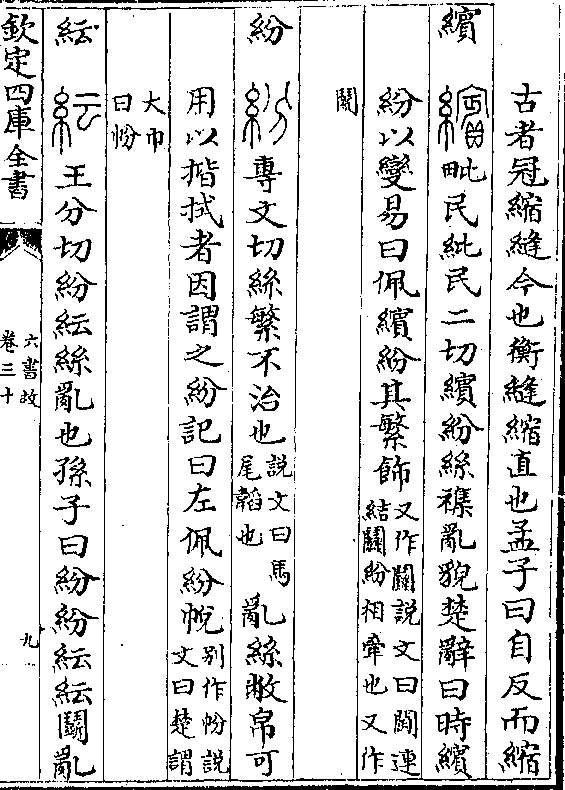 古者冠縮縫今也衡縫縮直也孟子曰自反而縮
繽 毗民紕民二切繽紛絲襍亂貌楚辭曰時繽
紛以變易曰佩繽紛其繁飾
又作 說文曰鬭連
結鬭紛相牽也又作
紛 專文切絲繁不治也
說文曰馬
尾韜也
亂絲敝帛可
用以揩拭者因謂之紛記曰左佩紛帨
別作帉說
文曰楚謂
大巾
曰帉
紜 王分切紛紜絲亂也孫子曰紛紛紜紜鬭亂
欽定四庫全書
六書故
卷三十
九